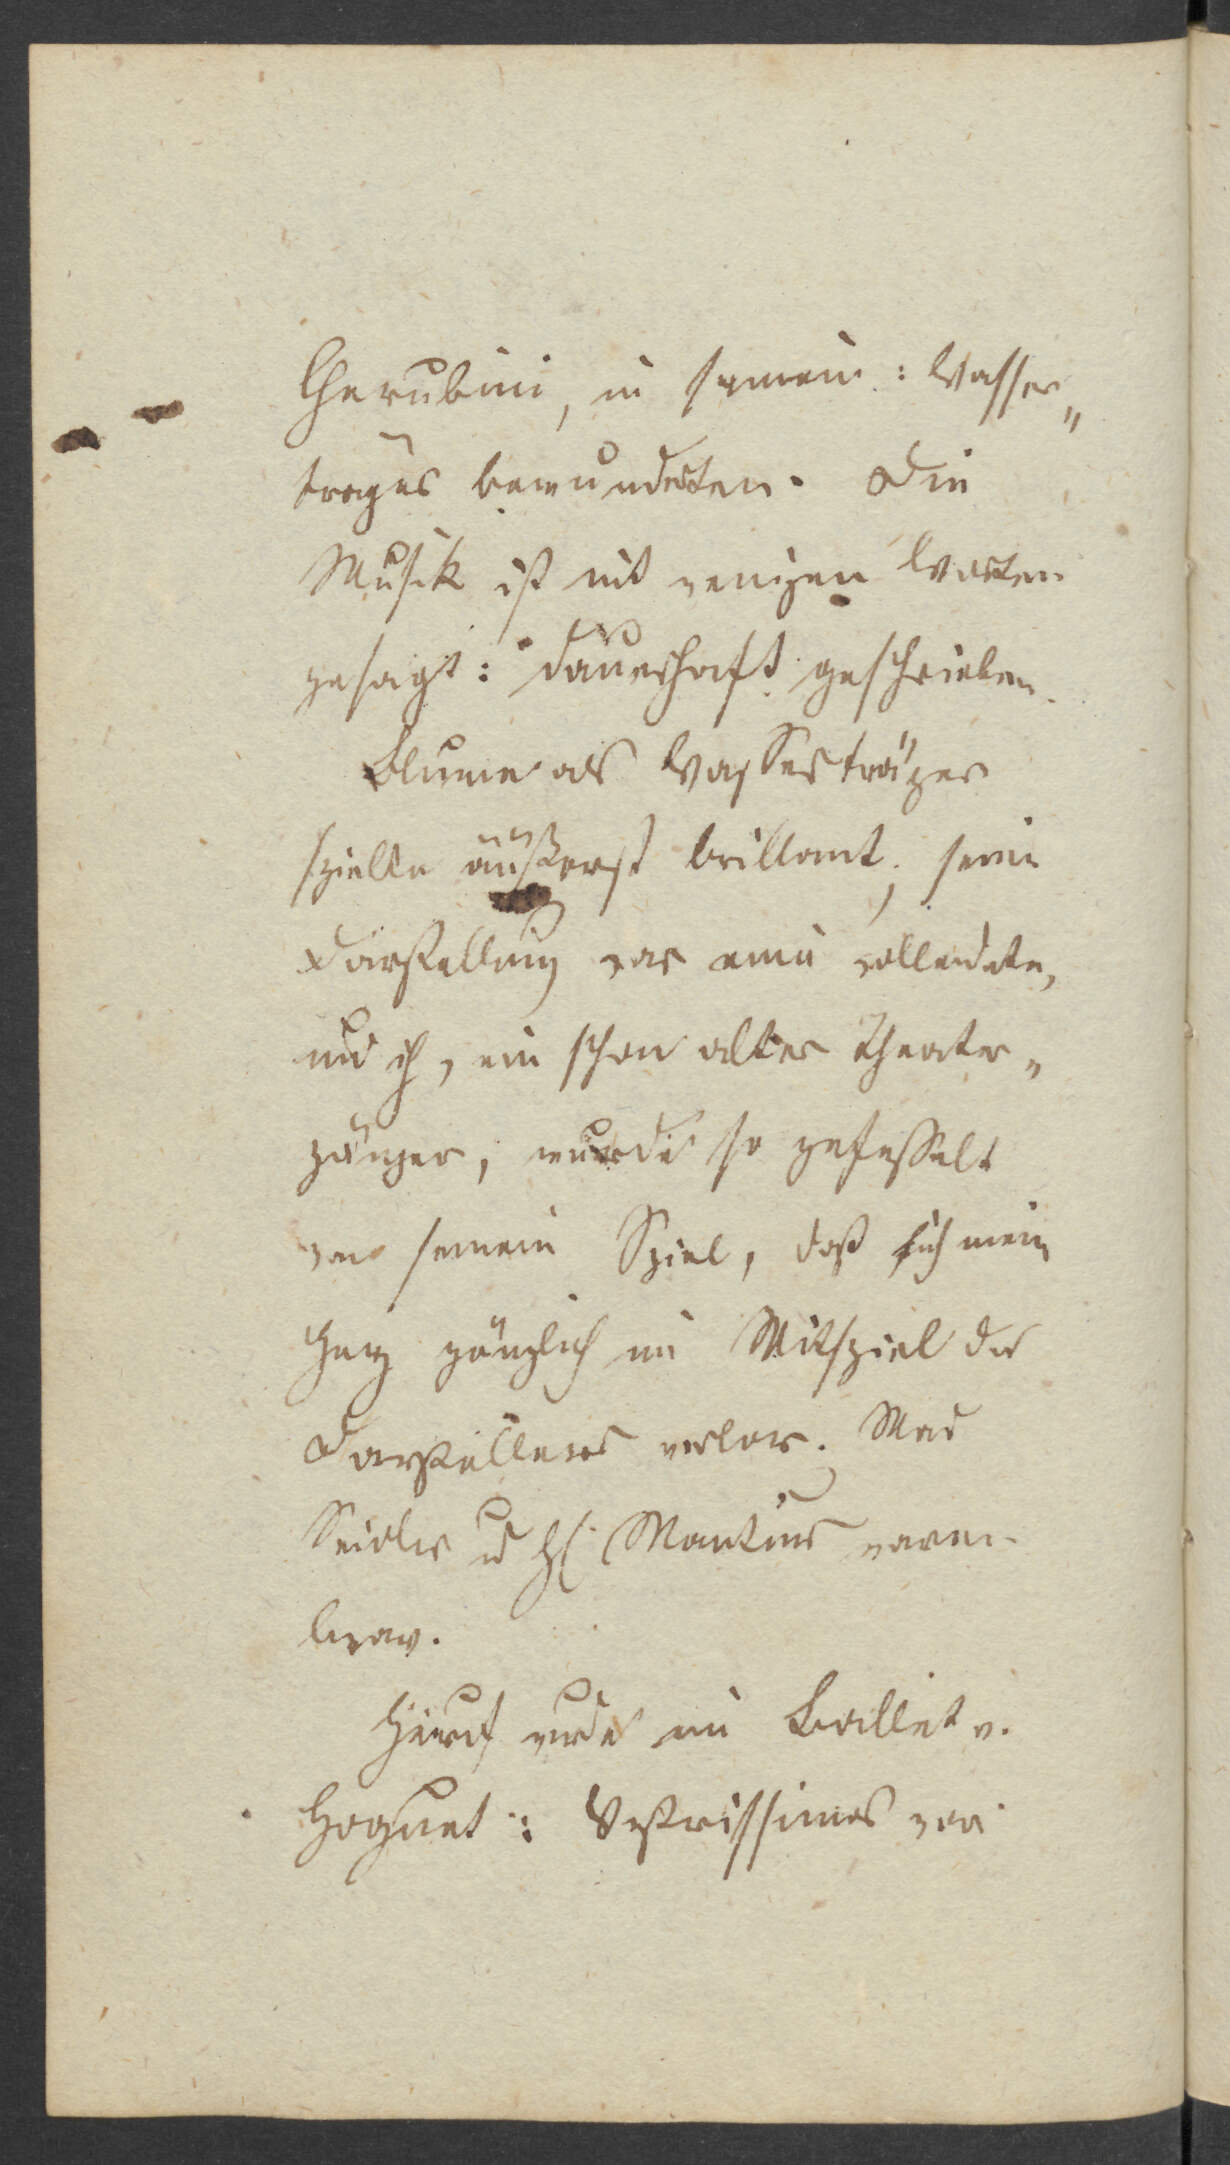 Cherubini, in seinem: Wasser„
träger bewunderten. Die
Musik ist mit wenigen Worten
gesagt: dauerhaft geschrieben.
Blume als Wasserträger
spielte äußerst brillant; seine
Darstellung war eine vollendete,
und ich, ein schon alter Theater„
gänger, wurde so gefesselt
von seinem Spiel, daß sich mein
Herz gänzlich im Mitspiel des
Darstellers verlor. Mad
Seidler u H. Mantius waren
brav.
Hierauf wurde ein Ballet v.
Hoguet: Vestrissimos